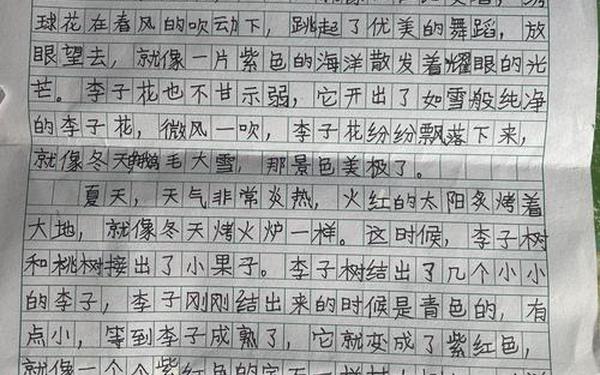 球花在春风的吹动下，跳起了优美的舞蹈，放
眼望去，就像一片紫色的海洋散发着耀眼的光
芒。李子花也不甘示弱，它开出了如雪般纯净
的李子花，微风一吹，李子花纷纷飘落下来，
就像冬天鹅毛大雪，那景色美极了。
夏天，天气非常炎热，火红的太阳炙烤着
大地，就像冬天烤火炉一样。这时候，李子树
和桃树接出了小果子。李子树结出了几个小小
的李子，李子刚刚结出来的时候是青色的，有
点小，等到李子成熟了，它就变成了紫红色，
就像一个个紫红色的宝石一样